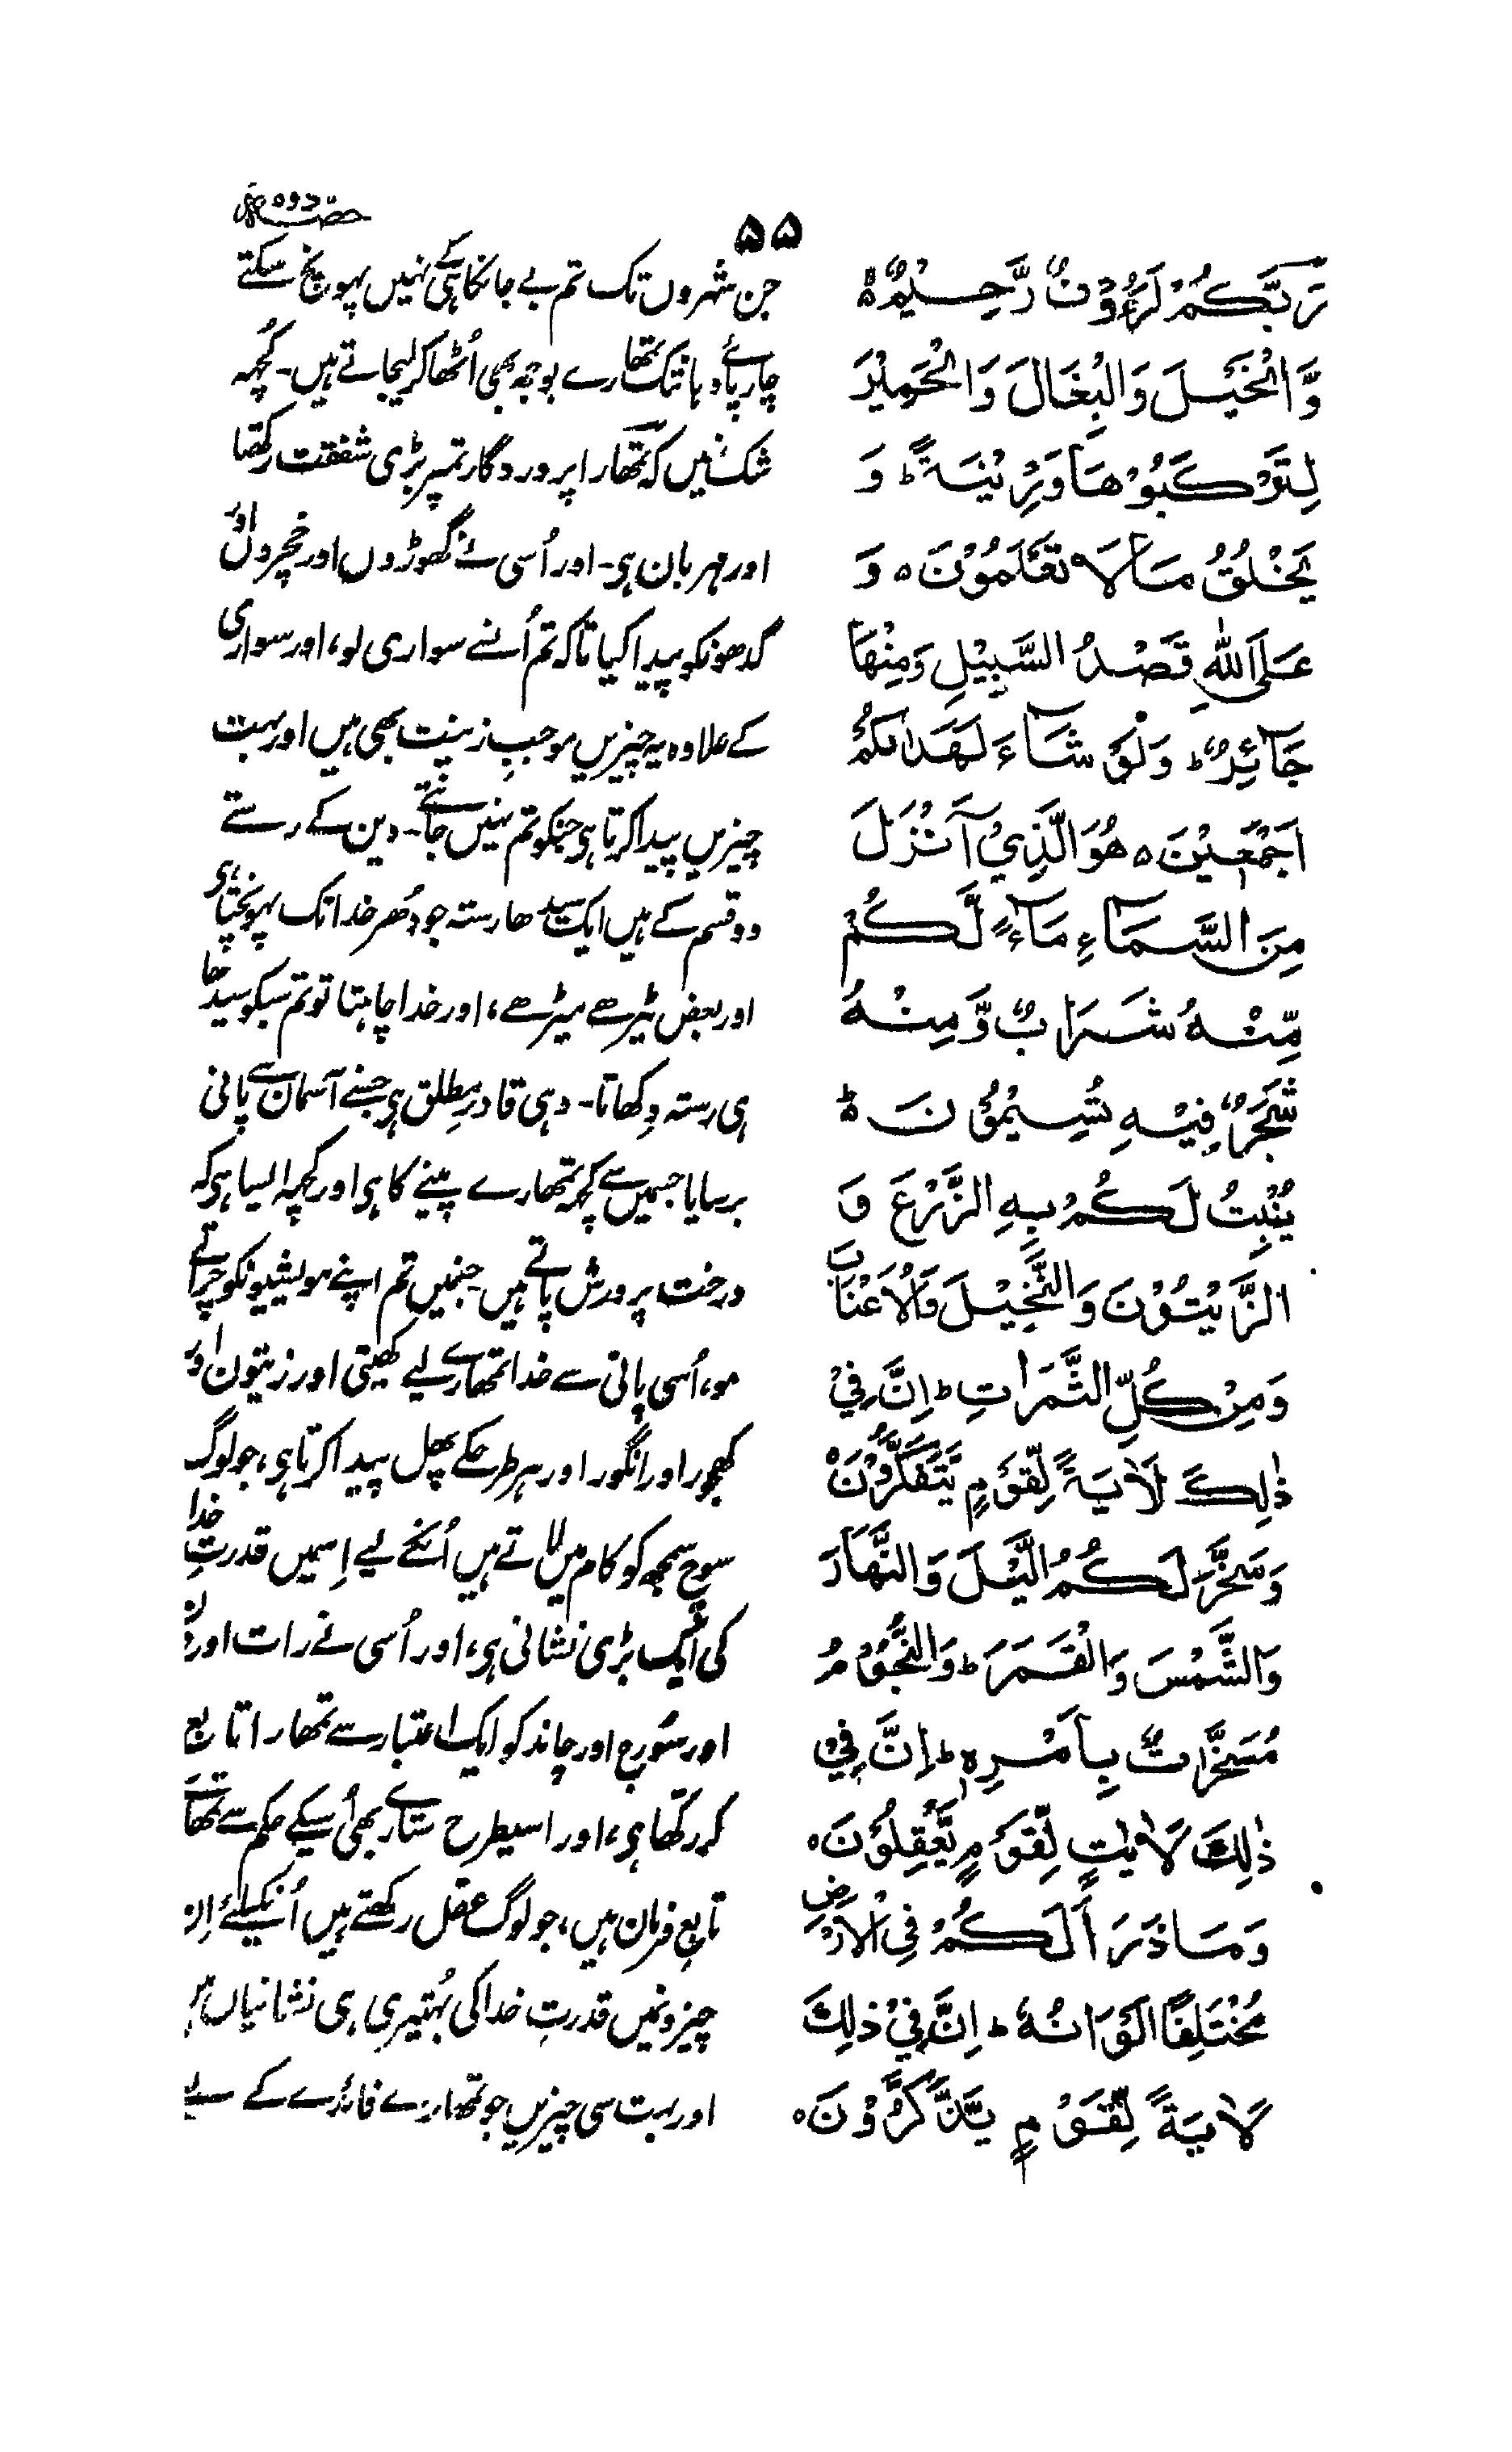 حصہ دوم
۵۵
رَبَّكُمْ لَرَءُوْفٌ رَّحِيْمٌ ہ
وَّالْخَيْلَ وَالْبِغَالَ وَالْحَمِيْرَ
لِتَرْكَبُوْهَا وَزِيْنَةً ؕ وَ
يَخْلُقُ مَا لَا تَعْلَمُوْنَ ہ وَ
عَلَى اللّٰهِ قَصْدُ السَّبِيْلِ وَمِنْهَا
جَآئِرٌ ؕ وَلَوْ شَآءَ لَهَدٰىكُمْ
اَجْمَعِيْنَ ہ هُوَ الَّذِيْٓ اَنْزَلَ
مِنَ السَّمَآءِ مَآءً لَّكُمْ
مِّنْهُ شَرَابٌ وَّمِنْهُ
شَجَرٌ فِيْهِ تُسِيْمُوْنَ ؕ
يُنْبِتُ لَكُمْ بِهِ الزَّرْعَ وَ
الزَّيْتُوْنَ وَالنَّخِيْلَ وَالْاَعْنَابَ
وَمِنْ كُلِّ الثَّمَرَاتِ ؕ اِنَّ فِيْ
ذٰلِكَ لَاٰيَةً لِّقَوْمٍ يَّتَفَكَّرُوْنَ ہ
وَسَخَّرَ لَكُمُ الَّيْلَ وَالنَّهَارَ
وَالشَّمْسَ وَالْقَمَرَ ؕ وَالنُّجُوْمُ
مُسَخَّرَاتٌ بِاَمْرِهٖ ؕ اِنَّ فِيْ
ذٰلِكَ لَاٰيٰتٍ لِّقَوْمٍ يَّعْقِلُوْنَ ہ
وَمَا ذَرَاَ لَكُمْ فِي الْاَرْضِ
مُخْتَلِفًا اَلْوَانُهٗ ؕ اِنَّ فِيْ ذٰلِكَ
لَاٰيَةً لِّقَوْمٍ يَّذَّكَّرُوْنَ ہ
جن شہروں تک تم بے جانکاہی کے نہیں پہونچ سکتے
چارپائے وہانتک تمھارے بوجھ بھی اُٹھا کر لیجاتے ہیں۔ کُچھ
شک نہیں کہ تمھارا پروردگار تمپر بڑی شفقت رکھتا
اور مہربان ہی۔ اور اُسی نے گھوڑوں اور خچروں اور
گدھونکو پیدا کیا تاکہ تم اُنسے سواری لو، اور سواری
کے علاوہ یہ چیزیں موجبِ زینت بھی ہیں اور بہت
چیزیں پیدا کرتا ہی جنکو تم نہیں جانتے۔ دین کے رستے
دو قسم کے ہیں ایک سیدھا رستہ جو دھر خدا تک پہونچتا ہی
اور بعض ٹیڑھے میڑھے، اور خدا چاہتا تو تم سبکو سیدھا
ہی رستہ دِکھاتا۔ وہی قادرِ مطلق ہی جسنے آسمان سے پانی
برسایا جسمیں سے کچھ تمھارے پینے کا ہی اور کچھ ایسا ہی کہ
درخت پرورش پاتے ہیں۔ جنمیں تم اپنے مویشیونکو چراتے
ہو، اُسی پانی سے خدا تمھارے لیے کھیتی اور زیتون اور
کھجور اور انگور اور ہر طرحکے پھل پیدا کرتا ہی، جو لوگ
سوچ سمجھ کو کام میں لاتے ہیں اُنکے لیے اِسمیں قدرتِ خدا
کی ایک بڑی نشانی ہی، اور اُسی نے رات اور
اور سُورج اور چاند کو ایک اعتبار سے تمھارا تابع
کر رکھا ہی، اور اسیطرح ستارے بھی اُسیکے حکم سے تمھارے
تابعِ فرمان ہیں، جو لوگ عقل رکھتے ہیں اُنکیلئے اِن
چیزونمیں قدرتِ خدا کی بُہتیری ہی نشانیاں ہیں
اور بہت سی چیزیں جو تمھارے فائدے کے لیے